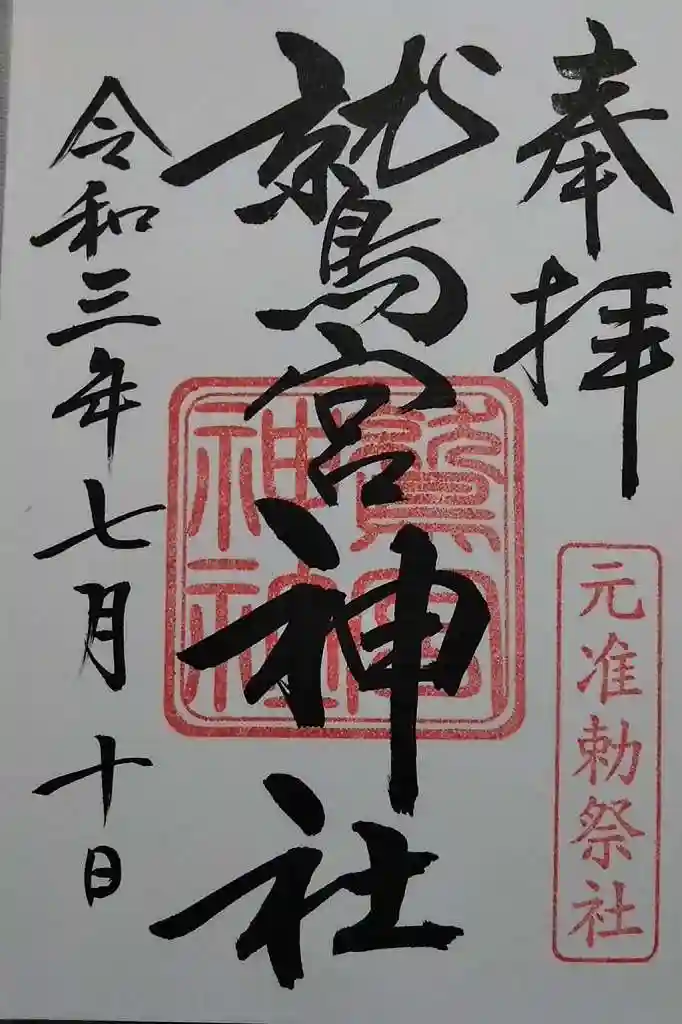 奉拝
元准勅祭社
鷲宮神社
鷲宮神社
令和三年七月十日